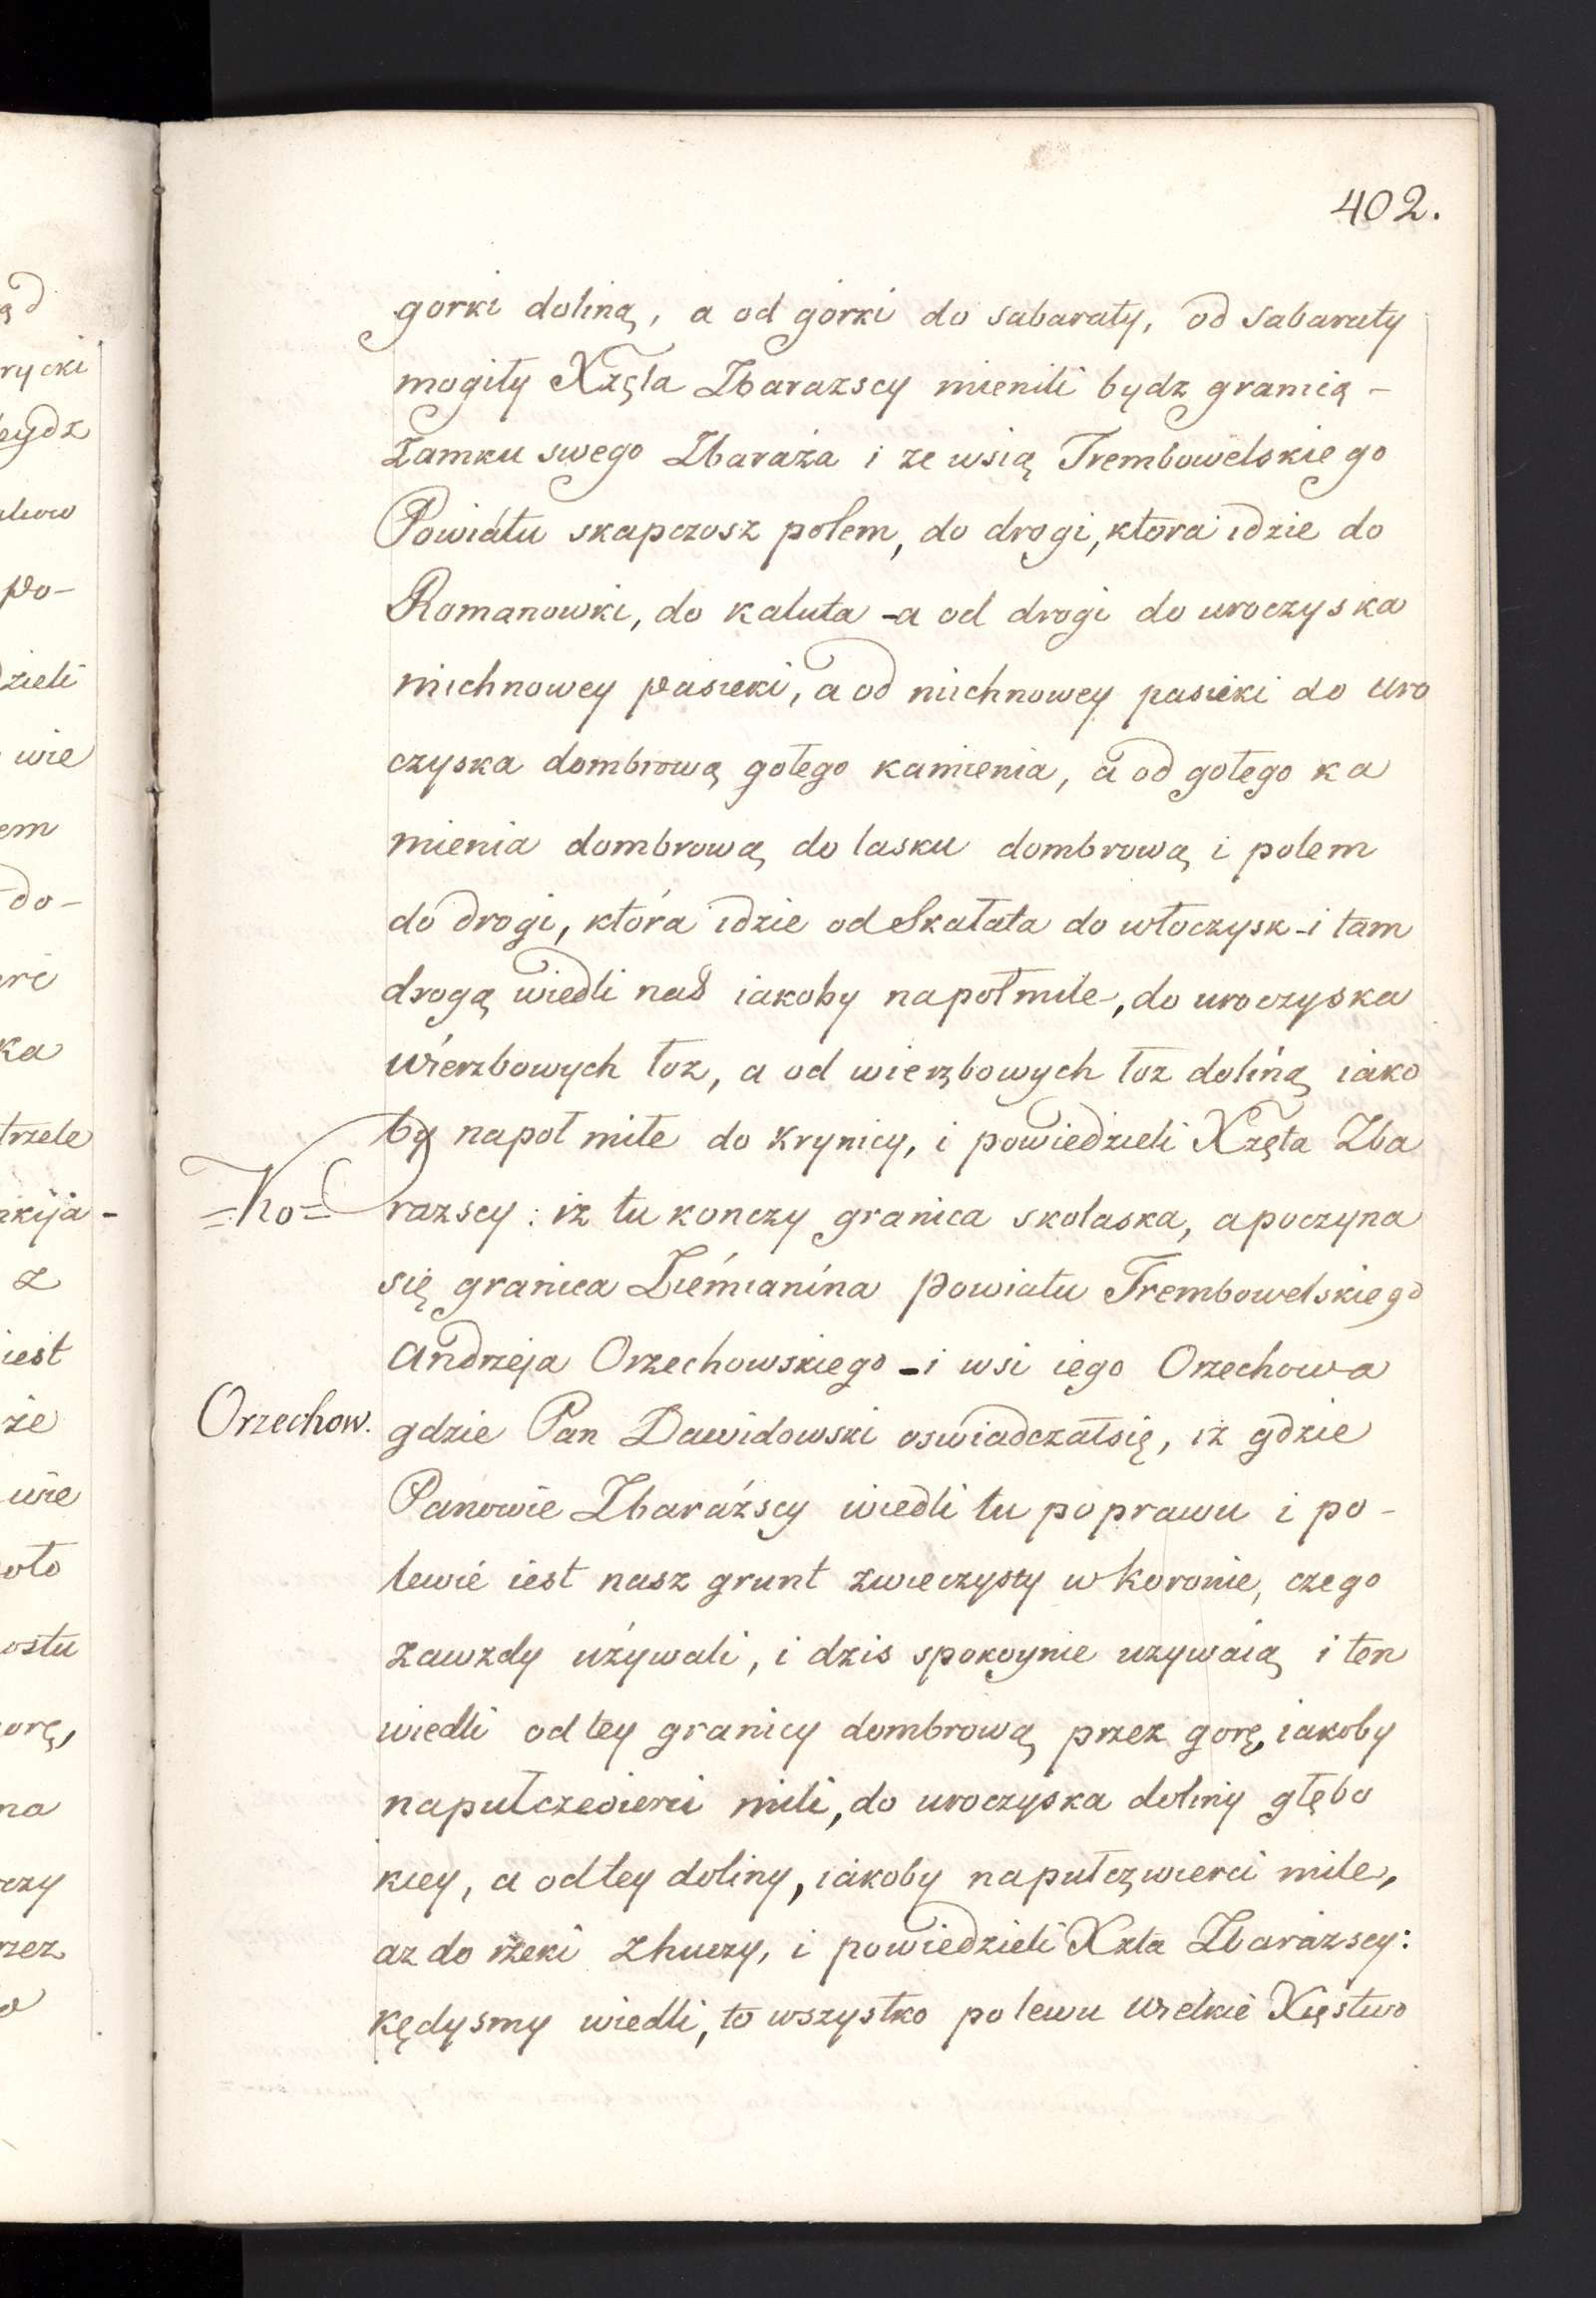 402.
gorki doliną, a od górki do sabaraty, od sabaraty
mogiły Xzęta Zbarazscy mienili bydz granicą -
Zamku swego Zbaraża i ze wsią Trembowelskiego
Powiatu skapczosz polem, do drogi, ktora idzie do
Romanowki, do kaluta - a od drogi do uroczyska
michnowey pasieki, a od michnowey pasieki do uro
czyska dombrową gołego kamienia, a od gołego ka
mienia dombrową do lasku dombrową i polem
do drogi, która idzie od Skałata do włoczysk - i tam
drogą wiedli nas iakoby napoł mile, do uroczyska
wierzbowych łoz, a od wierzbowych łoz doliną iako
by napoł mile do krynicy, i powiedzieli Xzęta Zba
=Ko= razscy: iz tu konczy granica skolaska, a poczyna
się granica Ziemianina Powiatu Trembowelskiego
Andrzeja Orzechowskiego - i wsi iego Orzechowa
Orzechow. gdzie Pan Dawidowski oswiadczał się, iz gdzie
Panowie Zbarázscy wiedli tu po prawu i po -
lewie iest nasz grunt zwieczysty w koronie, czego
zawzdy używali, i dzis spokoynie uzywaią i ten
wiedli od tey granicy dombrową przez gorę, iakoby
napułczewierci mili, do uroczyska doliny głębo
kiey, a od tey doliny, iakoby napułczwierci mile,
az do rzeki Zhuczy, i powiedzieli Xzta Zbarażscy:
kędysmy wiedli, to wszystko po lewu wielkie Xięstwo